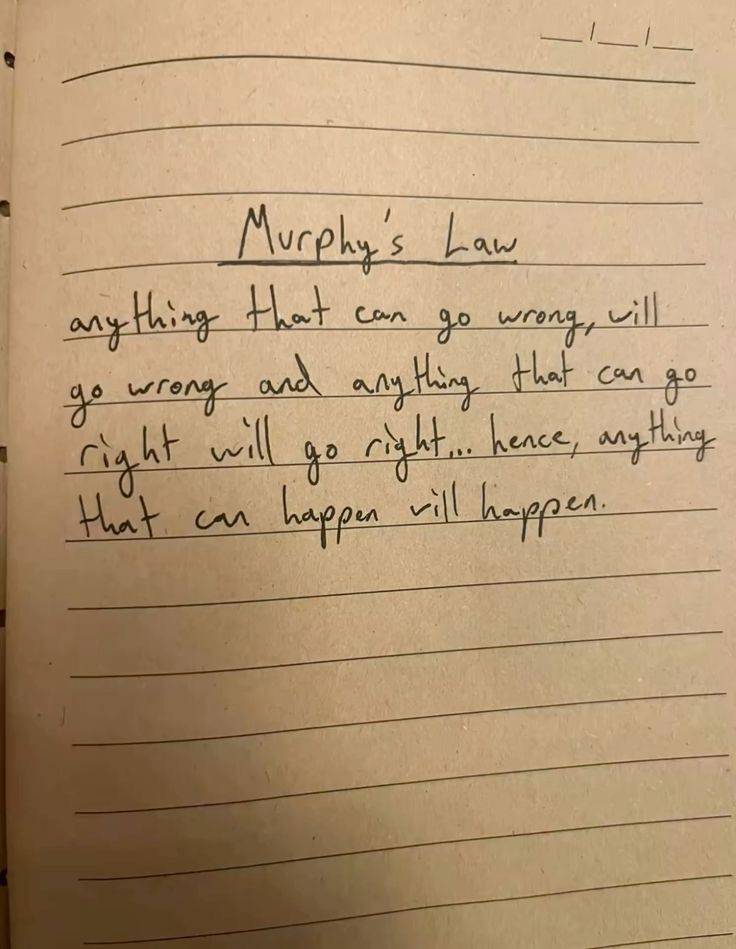 __/__/__
Murphy's Law
anything that can go wrong, will
go wrong and anything that can go
right will go right... hence, anything
that can happen will happen.